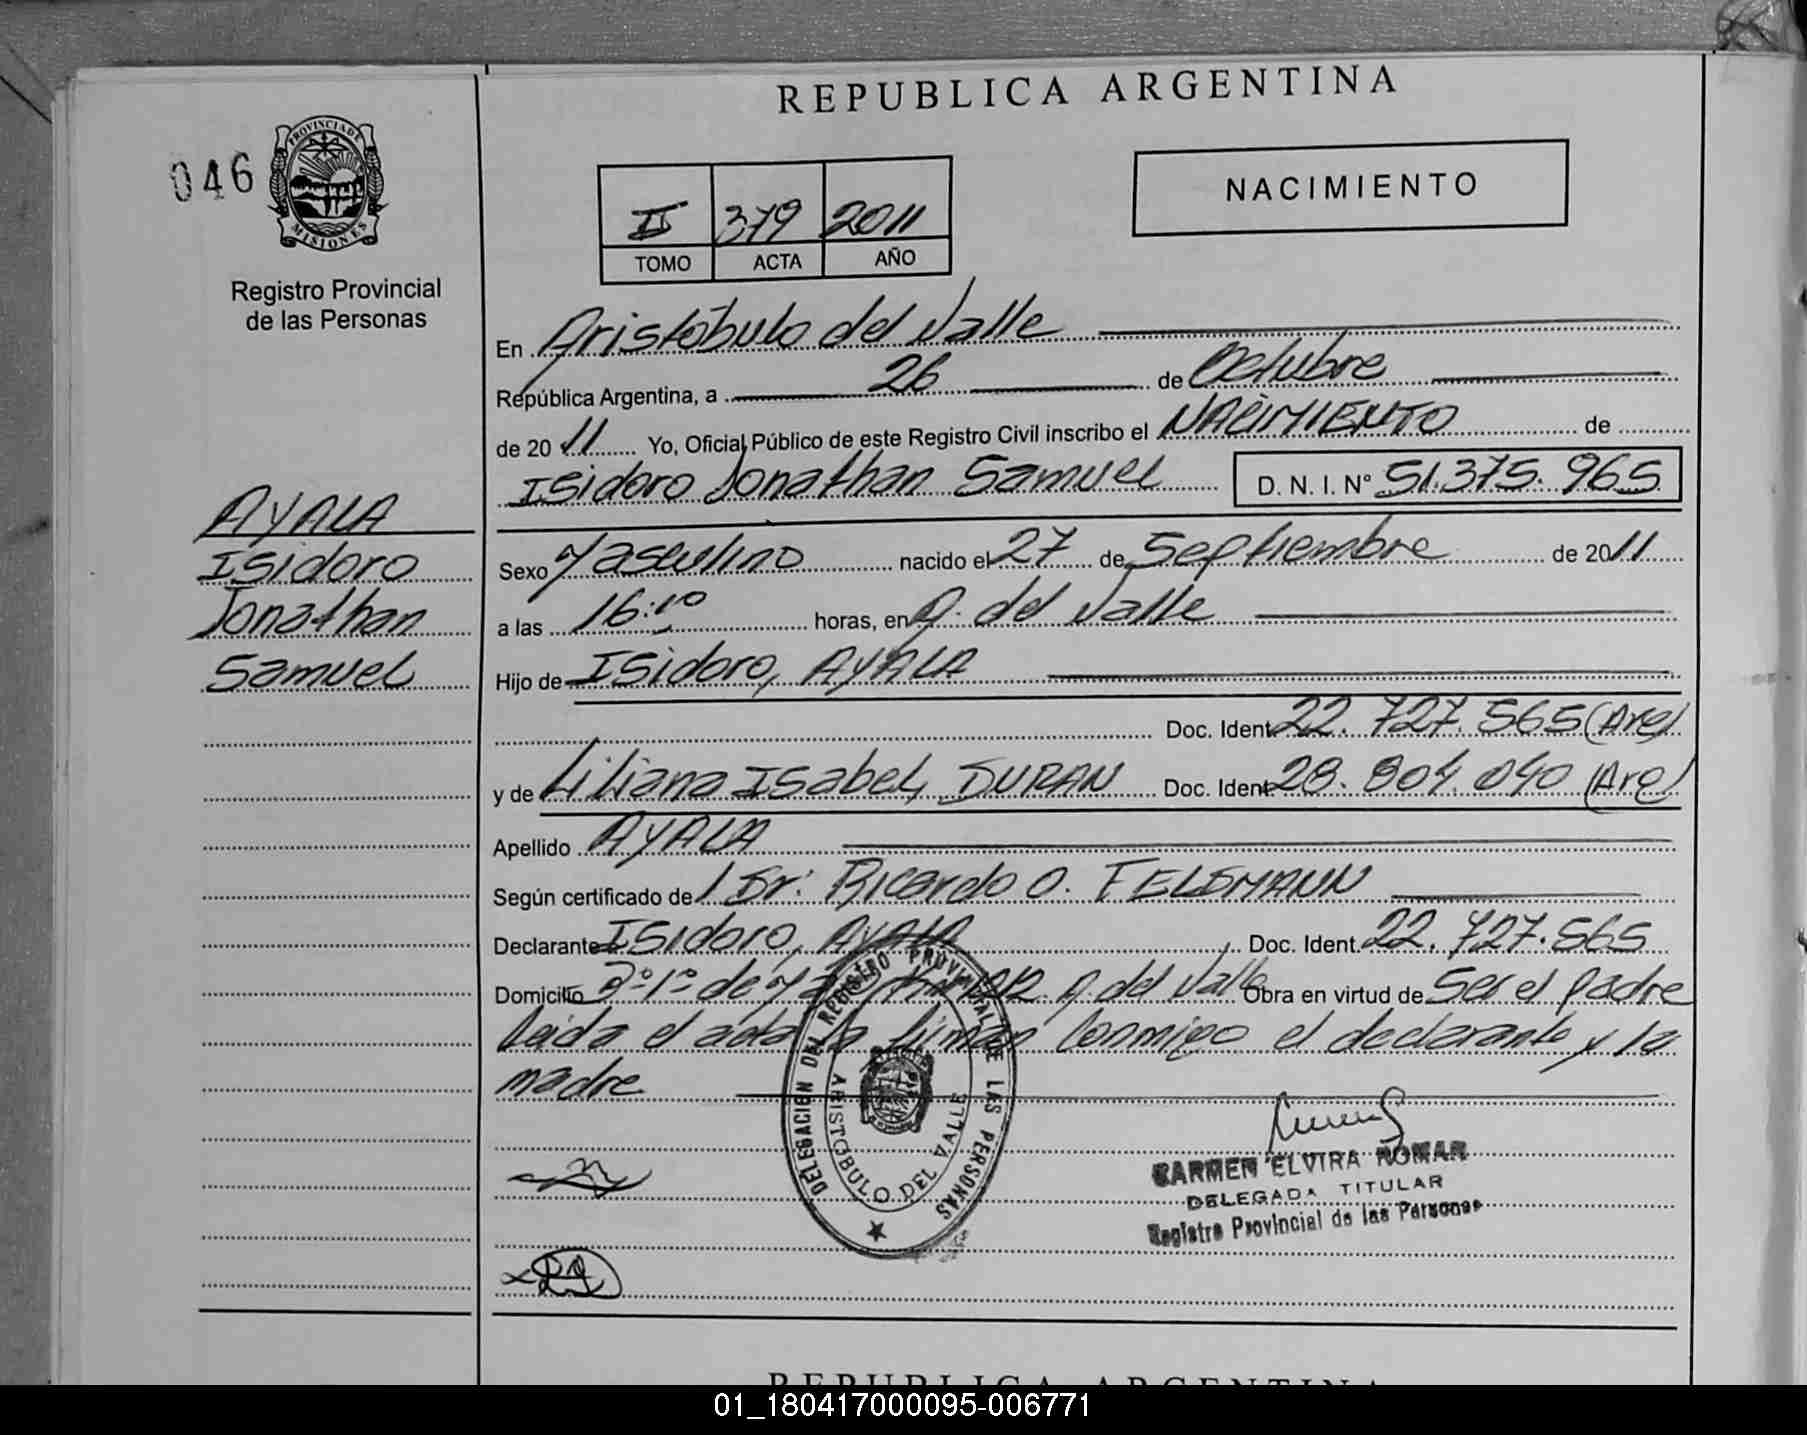 REPUBLICA ARGENTINA
046
PROVINCIA DE
MISIONES
Registro Provincial
de las Personas
II 379 2011
TOMO ACTA AÑO
NACIMIENTO
En Aristóbulo del Valle
República Argentina, a 26 de Octubre
de 2011 Yo, Oficial Público de este Registro Civil inscribo el NACIMIENTO de
Isidoro Jonathan Samuel D. N. I. Nº 51.375.965
AYALA
Isidoro
Jonathan
Samuel
Sexo Masculino nacido el 27 de Septiembre de 2011
a las 16:10 horas, en A. del Valle
Hijo de Isidoro, AYALA
Doc. Ident 22.727.565 (Arg)
y de Liliana Isabel, DURAN Doc. Ident 28.804.040 (Arg)
Apellido AYALA
Según certificado de / Dr: Ricardo O. FELDMANN
Declarante Isidoro, AYALA Doc. Ident. 22.727.565
Domicilio de A. del Valle Obra en virtud de Ser el padre
Leida el acta la firman conmigo el declarante y la
madre
DELEGACION DEL REGISTRO PROVINCIAL DE LAS PERSONAS
ARISTOBULO DEL VALLE
CARMEN ELVIRA ROMAR
DELEGADA TITULAR
Registro Provincial de las Personas
REPUBLICA ARGENTINA
01_180417000095-006771